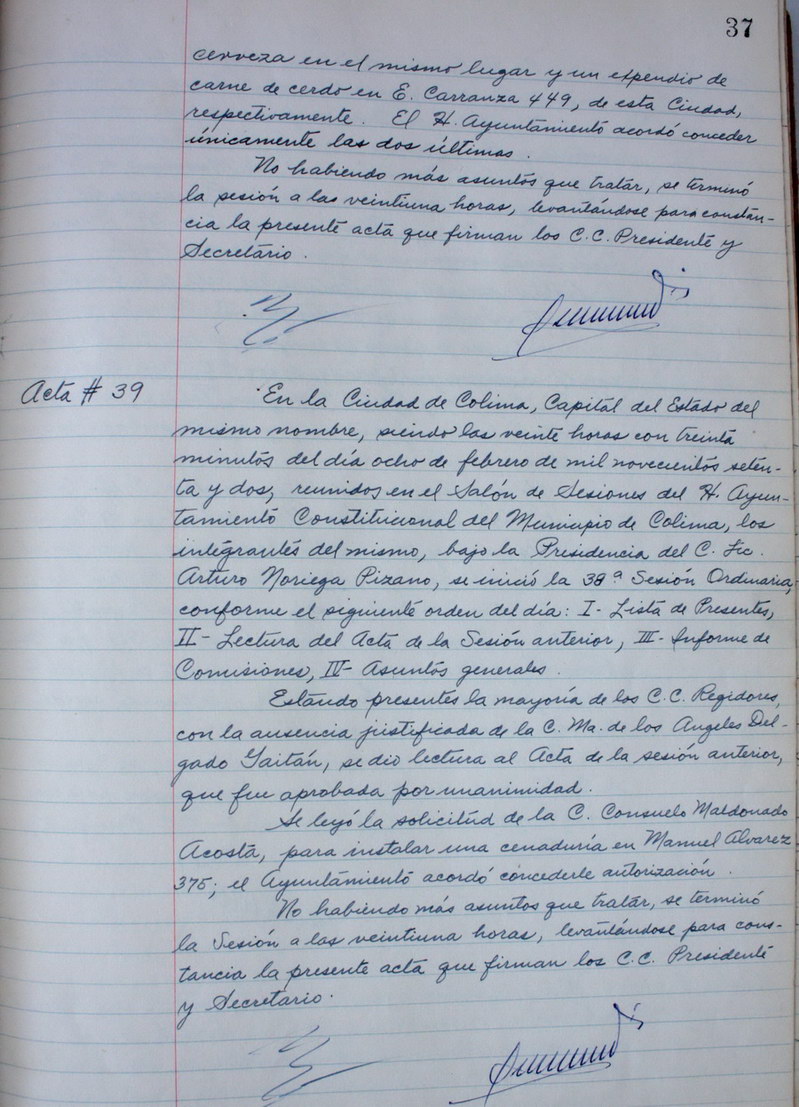 37
cerveza en el mismo lugar y un expendio de
carne de cerdo en E. Carranza 449, de esta Ciudad,
respectivamente. El H. Ayuntamiento acordó conceder
únicamente las dos últimas.
No habiendo más asuntos que tratar, se terminó
la sesión a las veintiuna horas, levantándose para constan-
cia la presente acta que firman los C.C. Presidente y
Secretario.
Acta # 39
En la Ciudad de Colima, Capital del Estado del
mismo nombre, siendo las veinte horas con treinta
minutos del día ocho de febrero de mil novecientos seten-
ta y dos, reunidos en el Salón de Sesiones del H. Ayun-
tamiento Constitucional del Municipio de Colima, los
integrantes del mismo, bajo la Presidencia del C. Lic.
Arturo Noriega Pizano, se inició la 38ª Sesión Ordinaria,
conforme el siguiente orden del día: I- Lista de Presentes,
II- Lectura del Acta de la Sesión anterior, III- Informe de
Comisiones, IV- Asuntos generales.
Estando presentes la mayoría de los C.C. Regidores,
con la ausencia justificada de la C. Ma. de los Angeles Del-
gado Gaitán, se dio lectura al Acta de la sesión anterior,
que fue aprobada por unanimidad.
Se leyó la solicitud de la C. Consuelo Maldonado
Acosta, para instalar una cenaduría en Manuel Alvarez
375; el Ayuntamiento acordó concederle autorización.
No habiendo más asuntos que tratar, se terminó
la Sesión a las veintiuna horas, levantándose para cons-
tancia la presente acta que firman los C.C. Presidente
y Secretario.